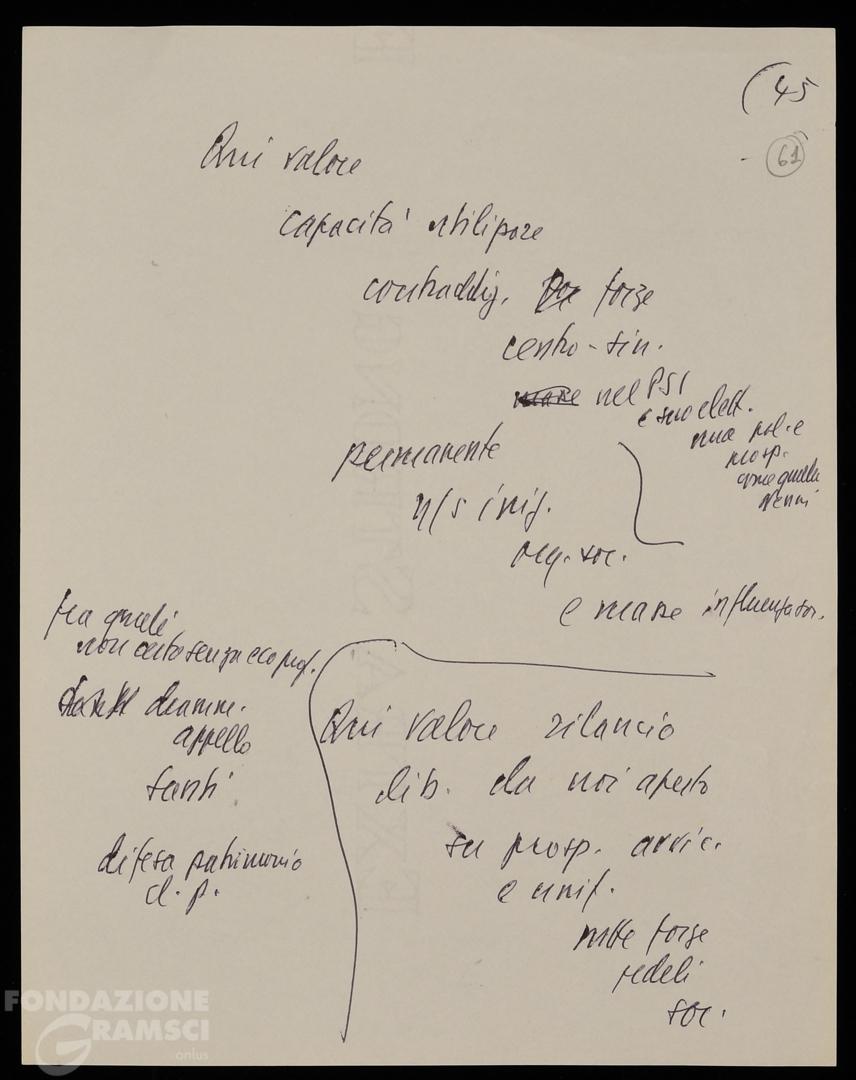 (45
61
Qui valore
capacità utilizzare
contraddiz. forze
centro-sin.
nel PSI
e suo elett.
una pol. e
prosp.
come quella
Nenni
permanente
n/s iniz.
org. soc.
e masse influenza soc.
fra quali
non certo senza eco prof.
dramm.
appello
Santi
difesa patrimonio
d. p.
Qui valore rilancio
dib. da noi aperto
su prosp. avvic.
e unif.
tutte forze
fedeli
soc.
FONDAZIONE
GRAMSCI
onlus